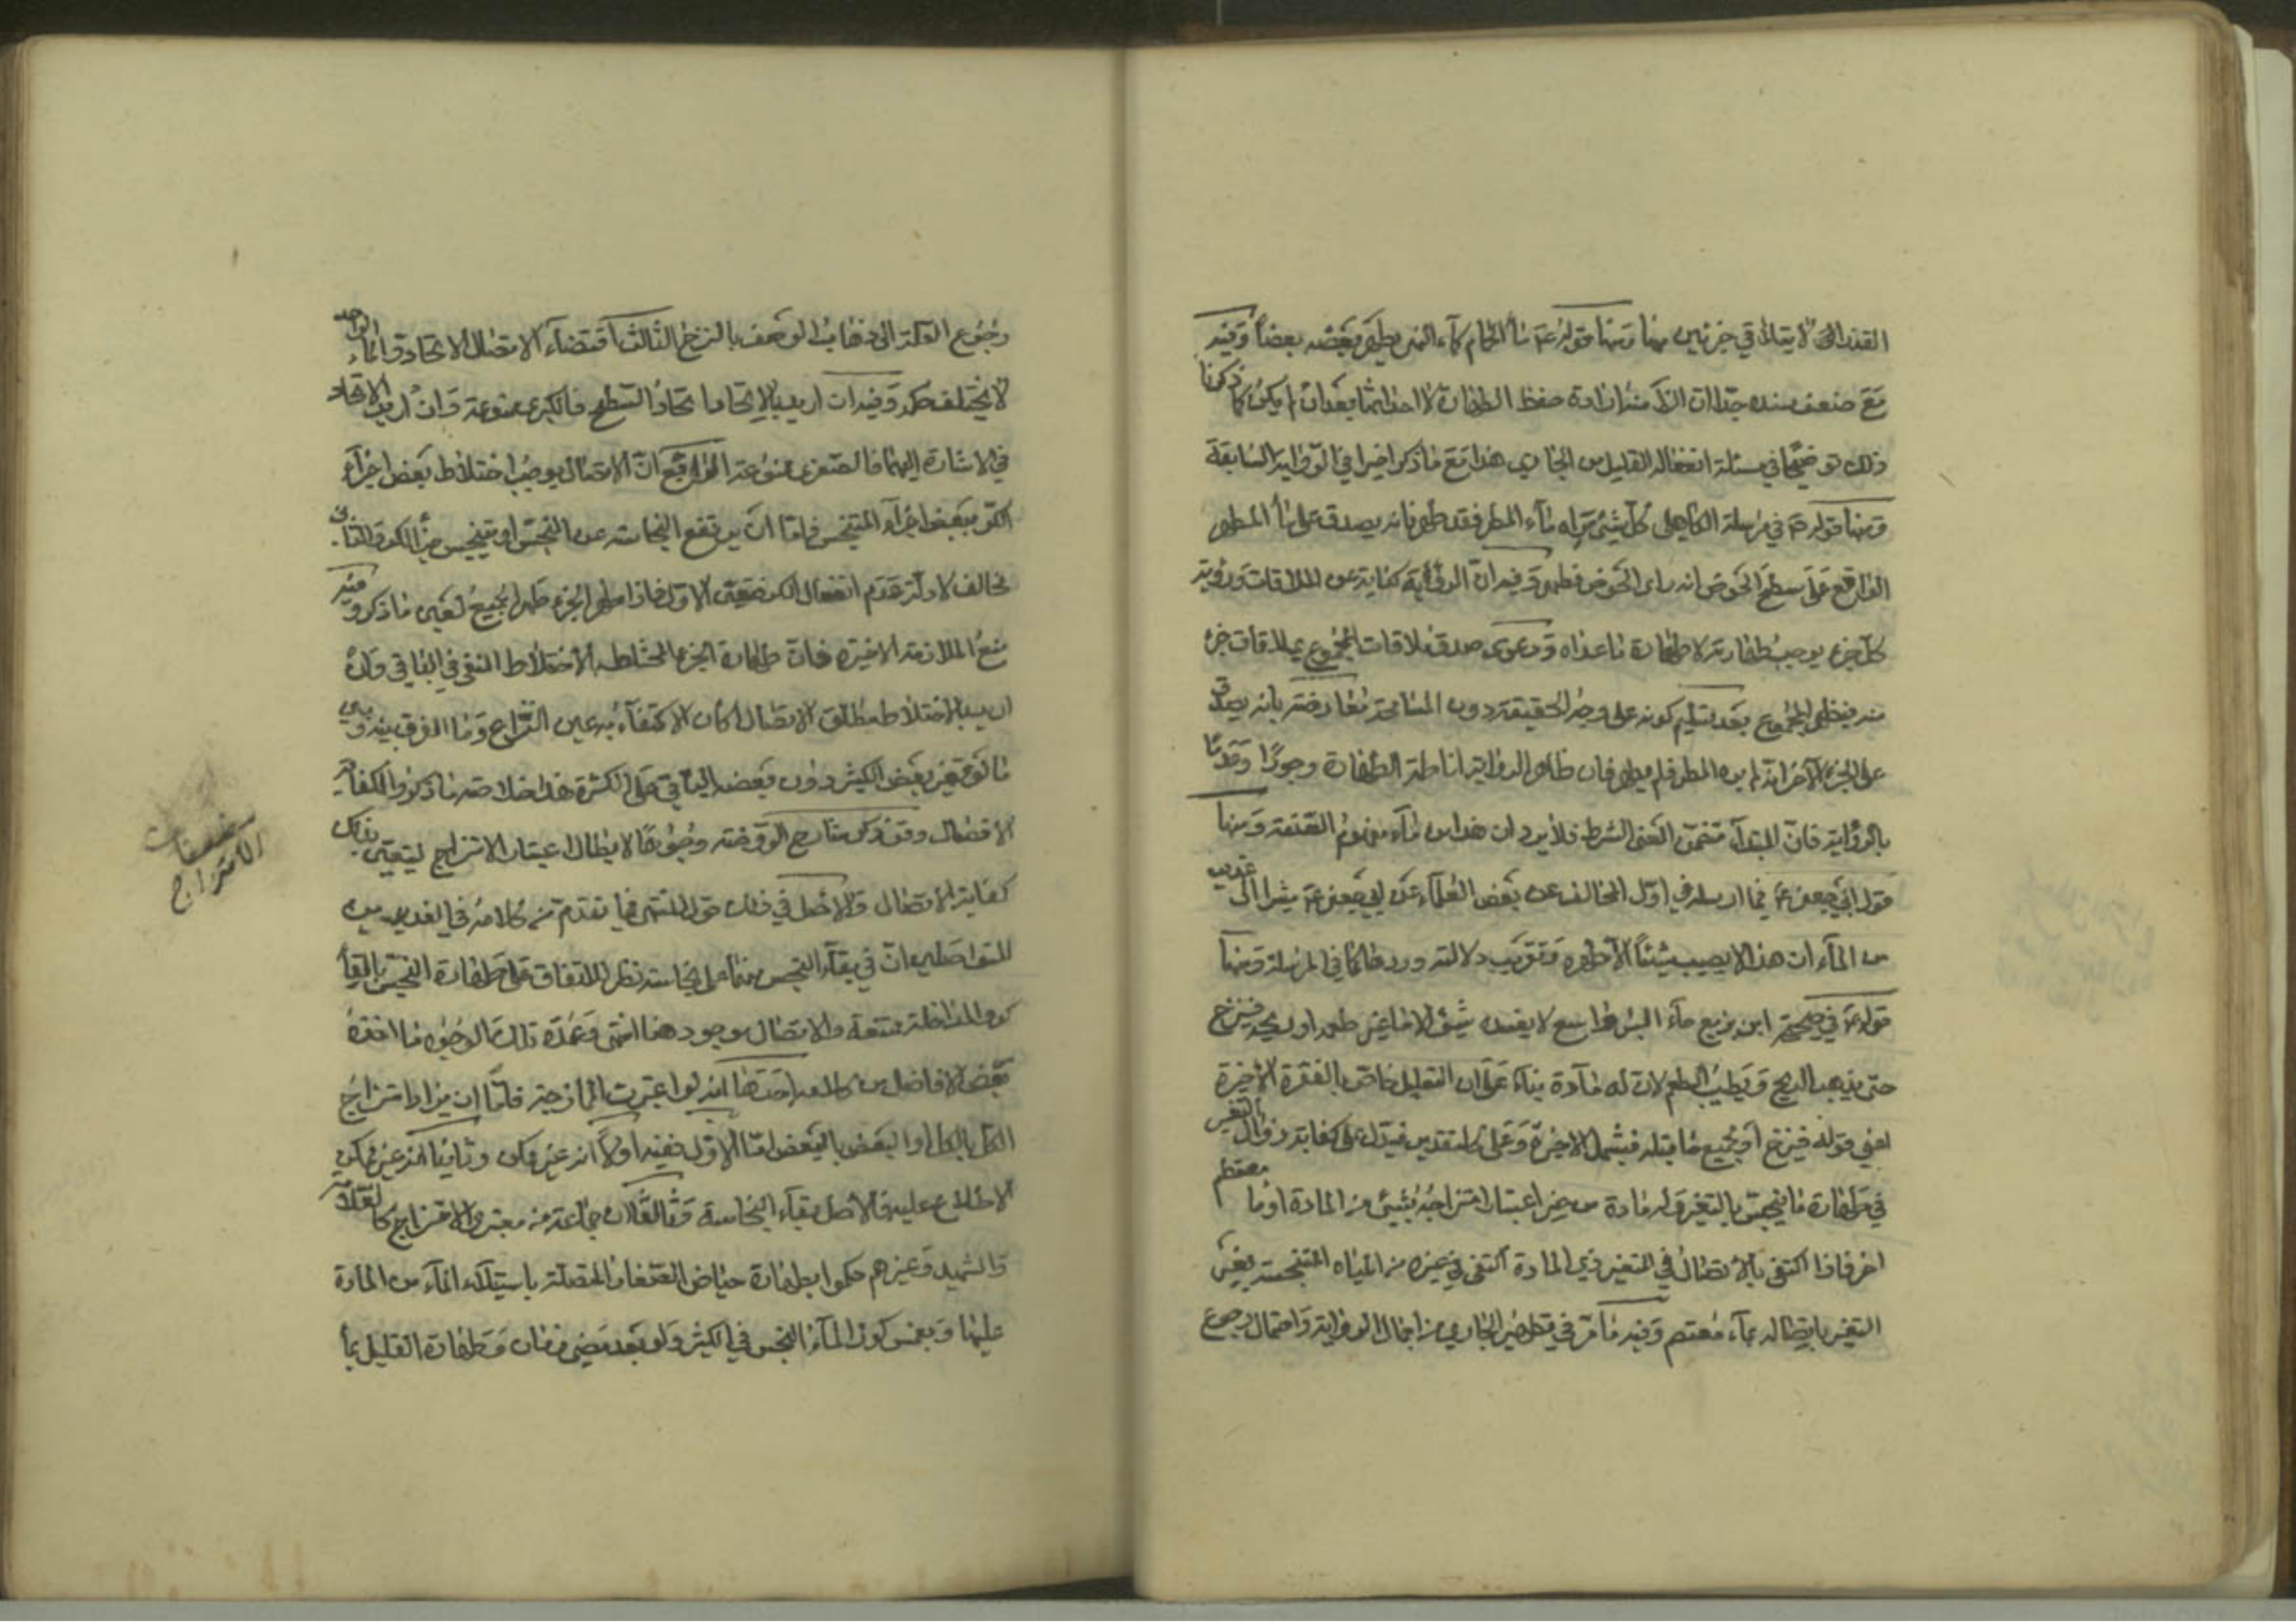 القذر الى لا يتلاقي جزئين منها ومنها قوله ع ماء الحمام كماء النهر يطهر بعضه بعضاً وفيه
مع ضعف سنده جدا ان الظ منه ارادة حفظ الطهارة لا احداثها بعد ان لم يكن كما ذكرنا
ذلك توضيحا في مسئلة انفعال القليل من الجاري هذا مع ما ذكر اخيرا في الرواية السابقة
ومنها قوله ع في مرسلة الكاهلي كل شيئ يراه ماء المطر فقد طهر فانه يصدق على ماء المطر
الواقع على سطح الحوض انه راى الحوض فطهر وفيه ان الرؤية كناية عن الملاقات ورؤية
كل جزء يوجب طهارته لا طهارة ما عداه ودعوى صدق ملاقات المجموع بملاقات جزء
منه فيطهر المجموع بعد تسليم كونه على وجه الحقيقة دون المسامحة معارضة بانه يصدق
على الجزء الآخر انه لم يره المطر فلم يطهر فان ظاهر الرواية اناطة الطهارة وجودًا وعدمًا
بالرؤية فان المبتدأ متضمن لمعنى الشرط فلا يرد ان هذا من باب مفهوم اللقب ومنها
قول ابي جعفر ع فيما ارسله في اول المختلف عن بعض العلماء عن ابي جعفر ع مشيرا الى غدير
من الماء ان هذا لا يصيب شيئاً الا طهره وتقريب دلالته ورده كما في المرسلة ومنها
قوله ع في صحيحة ابن بزيع ماء البئر واسع لا يفسده شيئ الا ما غير طعمه او ريحه فينزح
حتى يذهب الريح ويطيب الطعم لان له مادة بناء على ان التعليل خاص بالفقرة الاخيرة
اعني قوله فينزح او بجميع ما قبله فيشمل الاخيرة وعلى كل تقدير فيدل على كفاية زوال التغير
في طهارة ما ينجس بالتغير وله مادة من غير اعتبار امتزاجه بشيئ من المادة او ماء معتصم
اخر فاذا اكتفى بالاتصال في المتغير ذي المادة اكتفى في غيره من المياه المتنجسة بغير
التغير باتصاله بماء معتصم وفيه ما مر في تطهير الجاري من اجمال الرواية واحتمال رجوع
رجوع العلة الى ذهاب الوصف بالنزح الثالث اقتضاء الاتصال الاتحاد والماء الواحد
لا يختلف حكمه وفيه ان اريد بالاتحاد اتحاد السطح فالكبرى ممنوعة وان اريد الاتحاد
في الاشارة اليهما فالصغرى ممنوعة الرابع ان الاتصال يوجب اختلاط بعض اجزاء
الكر ببعض اجزاء المتنجس فاما ان يرتفع النجاسة عن النجس او يتنجس جزء الكر والثاني
مخالف لادلة عدم انفعال الكر فتعين الاول فاذا طهر الجزء طهر الجميع لعين ما ذكر وفيه
منع الملازمة الاخيرة فان طهارة الجزء المختلط بالاختلاط المنفي في الباقي وان
اريد بالاختلاط مطلق الاتصال كان الاكتفاء به عين النزاع وما الفرق بينه وبين
ما لو تغير بعض الكثير دون بعضه الباقي على الكثرة هذا خلاصة ما ذكروا لكفاية
الاتصال وقد ذكر شارح الروضة وجوها لابطال اعتبار الامتزاج ليتعين بذلك
كفاية الاتصال والاصل في ذلك قول المنتهى فيما تقدم من كلامه في الغديرين
المتواصلين ان في بقاء النجس منهما على نجاسته نظر للاتفاق على طهارة النجس بالقاء
كر والمداخلة ممتنعة والاتصال موجود هنا انتهى وعمدة تلك الوجوه ما اخذه
بعض الافاضل من كلامه احدها انه لو اعتبرت الممازجة فاما ان يراد امتزاج
الكل بالكل او البعض بالبعض اما الاول ففيه اولاً انه غير ممكن وثانيا انه غير ممكن
الاطلاع عليه فالاصل بقاء النجاسة وثالثا ان جماعة من معتبري الامتزاج كالعلامة
والشهيد وغيرهم حكموا بطهارة حياض الصغار المتصلة باستيلاء الماء من المادة
عليها وبغمس كوز الماء النجس في الكثير ولو بعد مضي زمان وطهارة القليل بما
مضعفات
الامتزاج